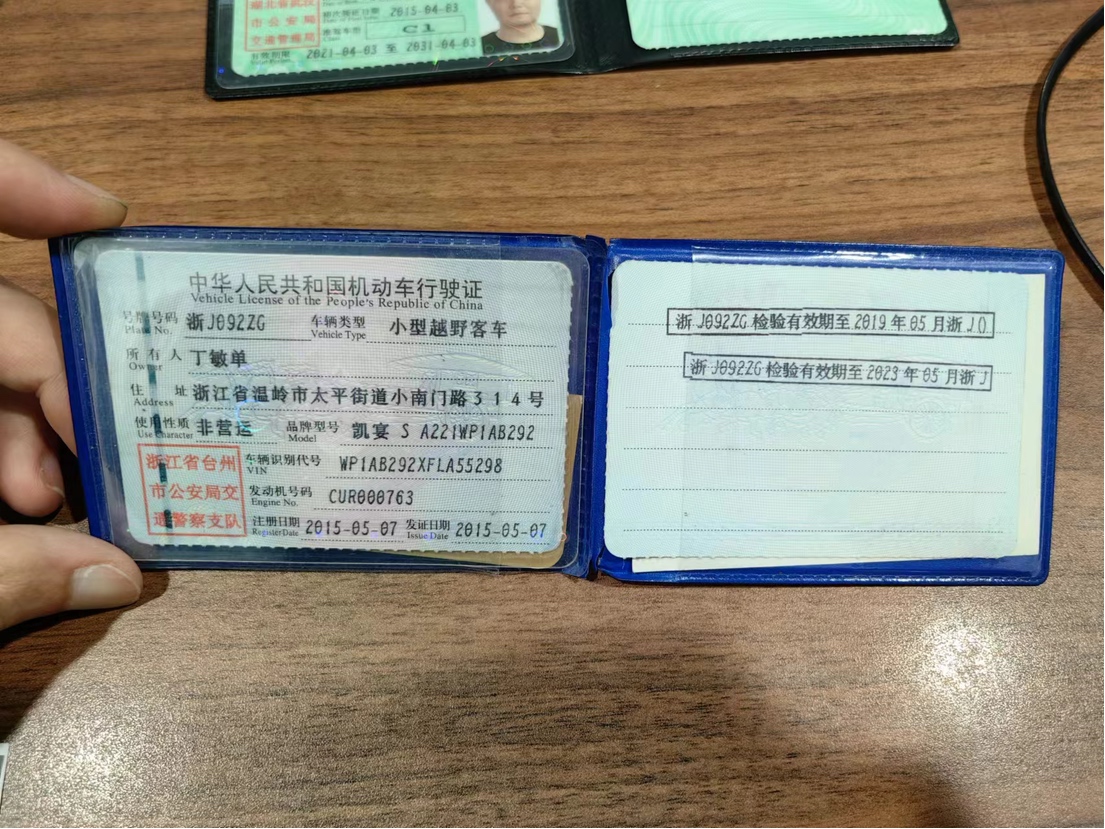 湖北省武汉
市公安局
交通管理局
初次领证日期 2015-04-03
准驾车型 C1
Class
有效期限 2021-04-03 至 2031-04-03
中华人民共和国机动车行驶证
Vehicle License of the People's Republic of China
号牌号码 浙J092ZG 车辆类型 小型越野客车
Plate No. Vehicle Type
所有人 丁敏单
Owner
住址 浙江省温岭市太平街道小南门路314号
Address
使用性质 非营运 品牌型号 凯宴 S A221WP1AB292
Use Character Model
浙江省台州
市公安局交
通警察支队
车辆识别代号 WP1AB292XFLA55298
VIN
发动机号码 CUR000763
Engine No.
注册日期 2015-05-07 发证日期 2015-05-07
Register Date Issue Date
浙 J092ZG 检验有效期至 2019 年 05 月浙 J 0
浙 J092ZG 检验有效期至 2023 年 05 月浙 J